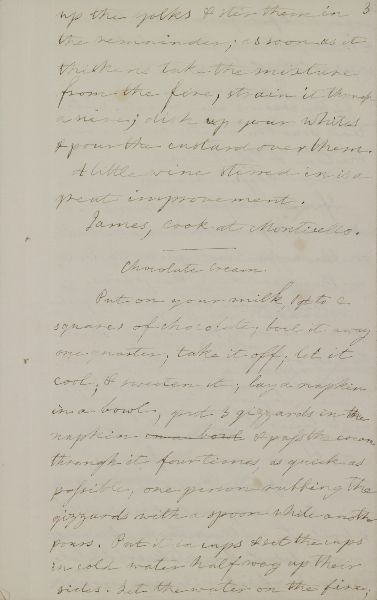 3
up the yolks & stir them in
the remainder; as soon as it
thickens take the mixture
from the fire, strain it through
a sieve; dish up your whites
& pour the custard over them.
A little wine stirred in is a
great improvement.
James, cook at Monticello.
Chocolate Cream.
Put on your milk, 1 qt to 2
squares of chocolate; boil it away
one quarter; take it off; let it
cool, & sweeten it; lay a napkin
in a bowl, put 3 gizzards in the
napkin in a bowl & pass the cream
through it four times, as quick as
possible, one person rubbing the
gizzards with a spoon while another
pours. Put it in cups & set the cups
in cold water half way up their
sides. Set the water on the fire,